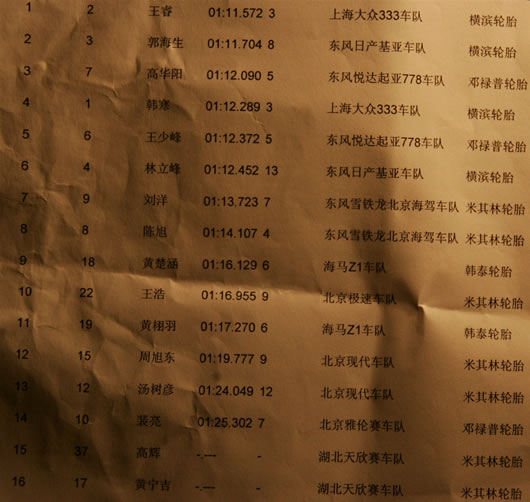 1 2 王睿 01:11.572 3 上海大众333车队 横滨轮胎
2 3 郭海生 01:11.704 8 东风日产基亚车队 横滨轮胎
3 7 高华阳 01:12.090 5 东风悦达起亚778车队 邓禄普轮胎
4 1 韩寒 01:12.289 3 上海大众333车队 横滨轮胎
5 6 王少峰 01:12.372 5 东风悦达起亚778车队 邓禄普轮胎
6 4 林立峰 01:12.452 13 东风日产基亚车队 横滨轮胎
7 9 刘洋 01:13.723 7 东风雪铁龙北京海驾车队 米其林轮胎
8 8 陈旭 01:14.107 4 东风雪铁龙北京海驾车队 米其林轮胎
9 18 黄楚涵 01:16.129 6 海马Z1车队 韩泰轮胎
10 22 王浩 01:16.955 9 北京极速车队 米其林轮胎
11 19 黄栩羽 01:17.270 6 海马Z1车队 韩泰轮胎
12 15 周旭东 01:19.777 9 北京现代车队 米其林轮胎
13 12 汤树彦 01:24.049 12 北京现代车队 米其林轮胎
14 10 裴亮 01:25.302 7 北京雅伦赛车队 邓禄普轮胎
15 37 高辉 -.--- - 湖北天欣赛车队 米其林轮胎
16 17 黄宁吉 -.--- - 湖北天欣赛车队 米其林轮胎